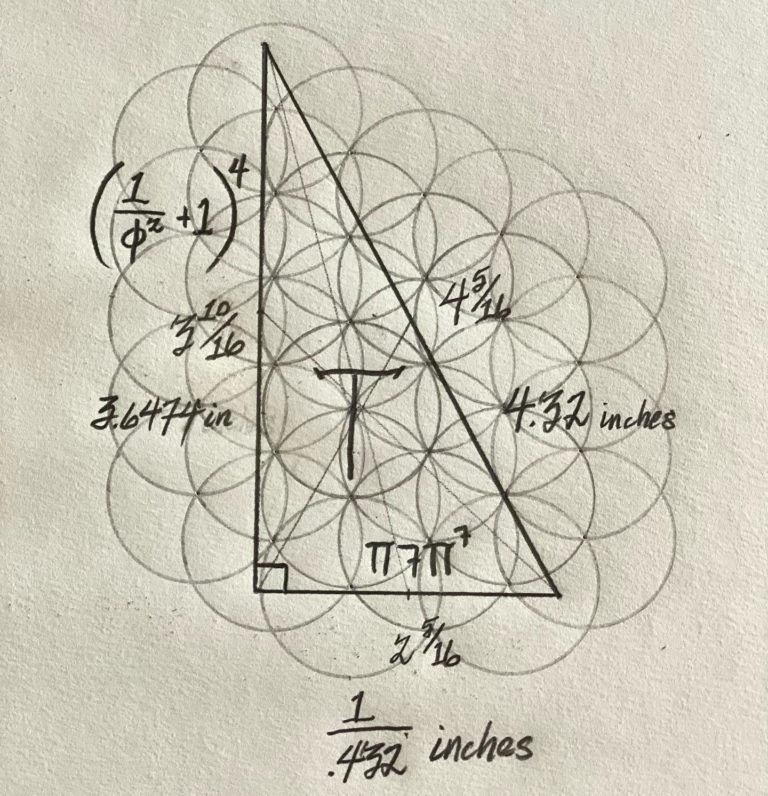 (1/ϕ² +1)⁴
3 10/16
3.6474 in
4 5/16
4.32 inches
T
π7π⁷
2 5/16
1/.432 inches